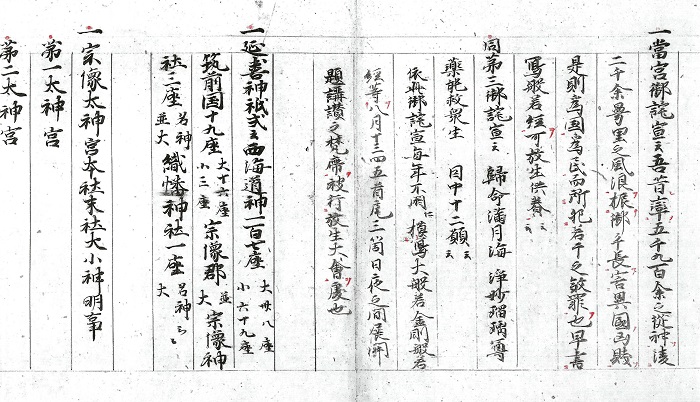 一當宮御詫宣云吾昔率五千九百余之從神凌
二千余万里之風浪振御手長言異國凶賊
是則為国為民而所犯若干之敎罪也早書
写般若経可放生供養云々
同第三御詫宣云 歸命満月海 浄妙瑠璃尊
藥能救衆生 因中十二願云々
依此御詫宣毎年不闕仁摸写大般若金剛般若
経等八月十三四五首尾三箇日夜之間展開
題講讃之梵席被行放生大會處也
一延喜神祇式云西海道神一百七座 大卅八座 小六十九座
筑前国十九座 大十六座 小三座 宗像郡 並大 宗像神
社三座 並大 名神 織幡神社一座 名神云々 大
一宗像太神宮本社末社大小神明事
第一太神宮
第二太神宮